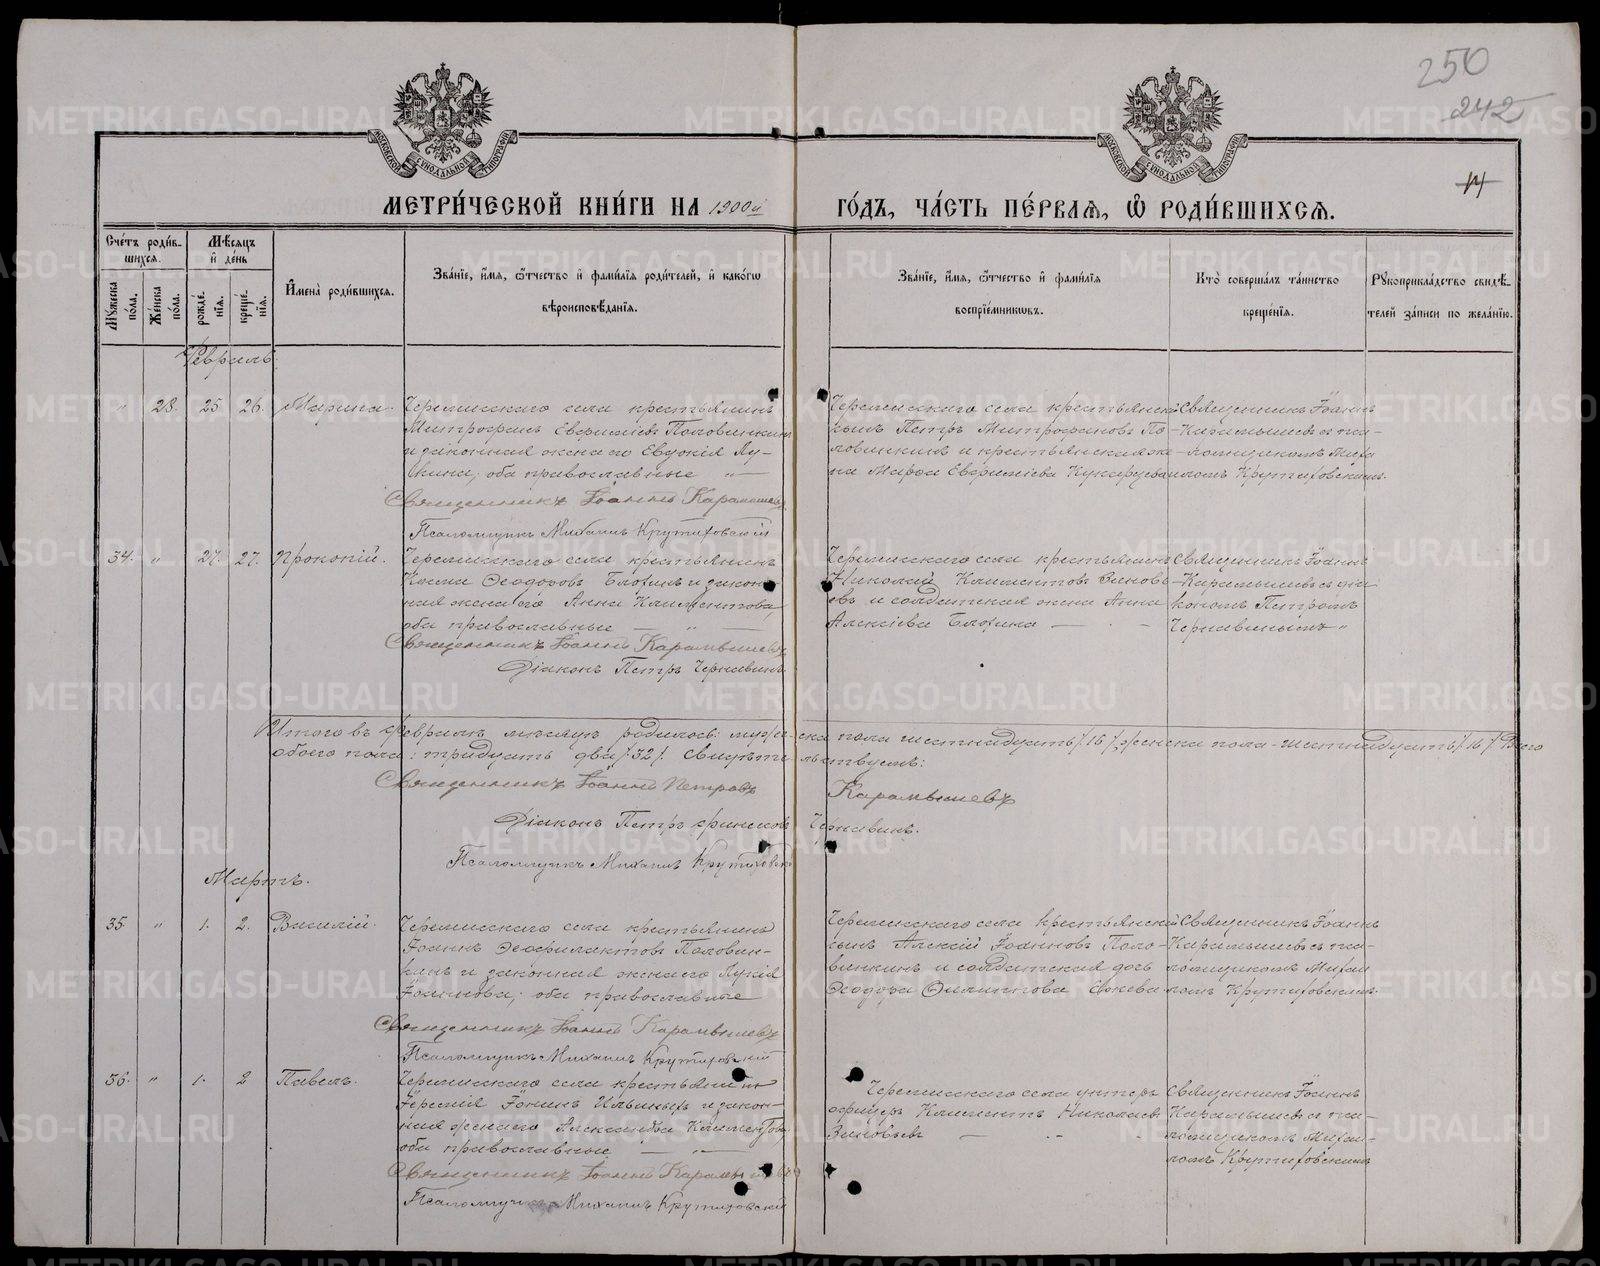 250
242
14
МЕТРИ́ЧЕСКОЙ КНИ́ГИ НА 1900й ГО́ДЪ, ЧА́СТЬ ПЕ́РВАѦ, Ѡ҆ РОДИ́ВШИХСѦ.
Сче́тъ роди́в-
шихся.
Мѣ́сяцъ
и҆ де́нь
Му́жеска по́ла.
Же́нска по́ла.
рожде́нїя.
креще́нїя.
И҆мена̀ роди́вшихся.
Зва́нїе, и҆́мя, ѻ҆́тчество и҆ фами́лїя роди́телей, и҆ како́гѡ
вѣроисповѣ́данїя.
Зва́нїе, и҆́мя, ѻ҆́тчество и҆ фами́лїя
воспрїе́мникѡвъ.
Кто̀ соверша́лъ та́инство
креще́нїя.
Рꙋкоприкла́дство свидѣ́-
телей за́писи по жела́нїю.
Февраль.
" 28. 25 26. Марина.
Черемисскаго села крестьянинъ
Митрофанъ Евфиміевъ Половинкинъ
и законная жена его Евдокія Лу-
кина, оба православные "
Священникъ Іоаннъ Карамышевъ
Псаломщикъ Михаилъ Крутиховскій
Черемисскаго села крестьянскій
сынъ Петръ Митрофановъ По-
ловинкинъ и крестьянская же-
на Марѳа Евфиміева
Священникъ Іоаннъ
Карамышевъ съ пса-
ломщикомъ Михаи-
ломъ Крутиховскимъ.
34. " 27. 27. Прокопій.
Черемисскаго села крестьянинъ
Косма Ѳеодоровъ Блохинъ и закон-
ная жена его Анна Климентова,
оба православные — " —
Священникъ Іоаннъ Карамышевъ
Діаконъ Петръ Чернавинъ
Черемисскаго села крестьянинъ
Николай Климентовъ Зиновь-
евъ и солдатская жена Анна
Алексіева Блохина —
Священникъ Іоаннъ
Карамышевъ съ діа-
кономъ Петромъ
Чернавинымъ "
Итого въ Февралѣ мѣсяцѣ родилось: мужеска пола шестнадцать /16/, женска пола - шестнадцать /16/ Всего
обоего пола: тридцать два /32/. Свидѣтельствуемъ:
Священникъ Іоаннъ Петровъ Карамышевъ
Діаконъ Петръ Чернавинъ.
Псаломщикъ Михаилъ Крутиховскій
Мартъ.
35 " 1. 2. Василій.
Черемисскаго села крестьянинъ
Іоаннъ Ѳеофилактовъ Половин-
кинъ и законная жена его Лукія
Іоаннова, оба православные
Священникъ Іоаннъ Карамышевъ
Псаломщикъ Михаилъ Крутиховскій
Черемисскаго села крестьянскій
сынъ Алексій Іоанновъ Поло-
винкинъ и солдатская дочь
Ѳеодора Филиппова
Священникъ Іоаннъ
Карамышевъ съ пса-
ломщикомъ Михаи-
ломъ Крутиховскимъ.
36. " 1. 2 Павелъ.
Черемисскаго села крестьянинъ
Іеремія Іонинъ Ильиныхъ и закон-
ная жена его Александра Климентова
оба православные — " —
Священникъ Іоаннъ Карамышевъ
Псаломщикъ Михаилъ Крутиховскій
Черемисскаго села унтеръ
офицеръ Климентъ Николаевъ
Зиновьевъ —
Священникъ Іоаннъ
Карамышевъ съ пса-
ломщикомъ Михаи-
ломъ Крутиховскимъ
METRIKI.GASO-URAL.RU